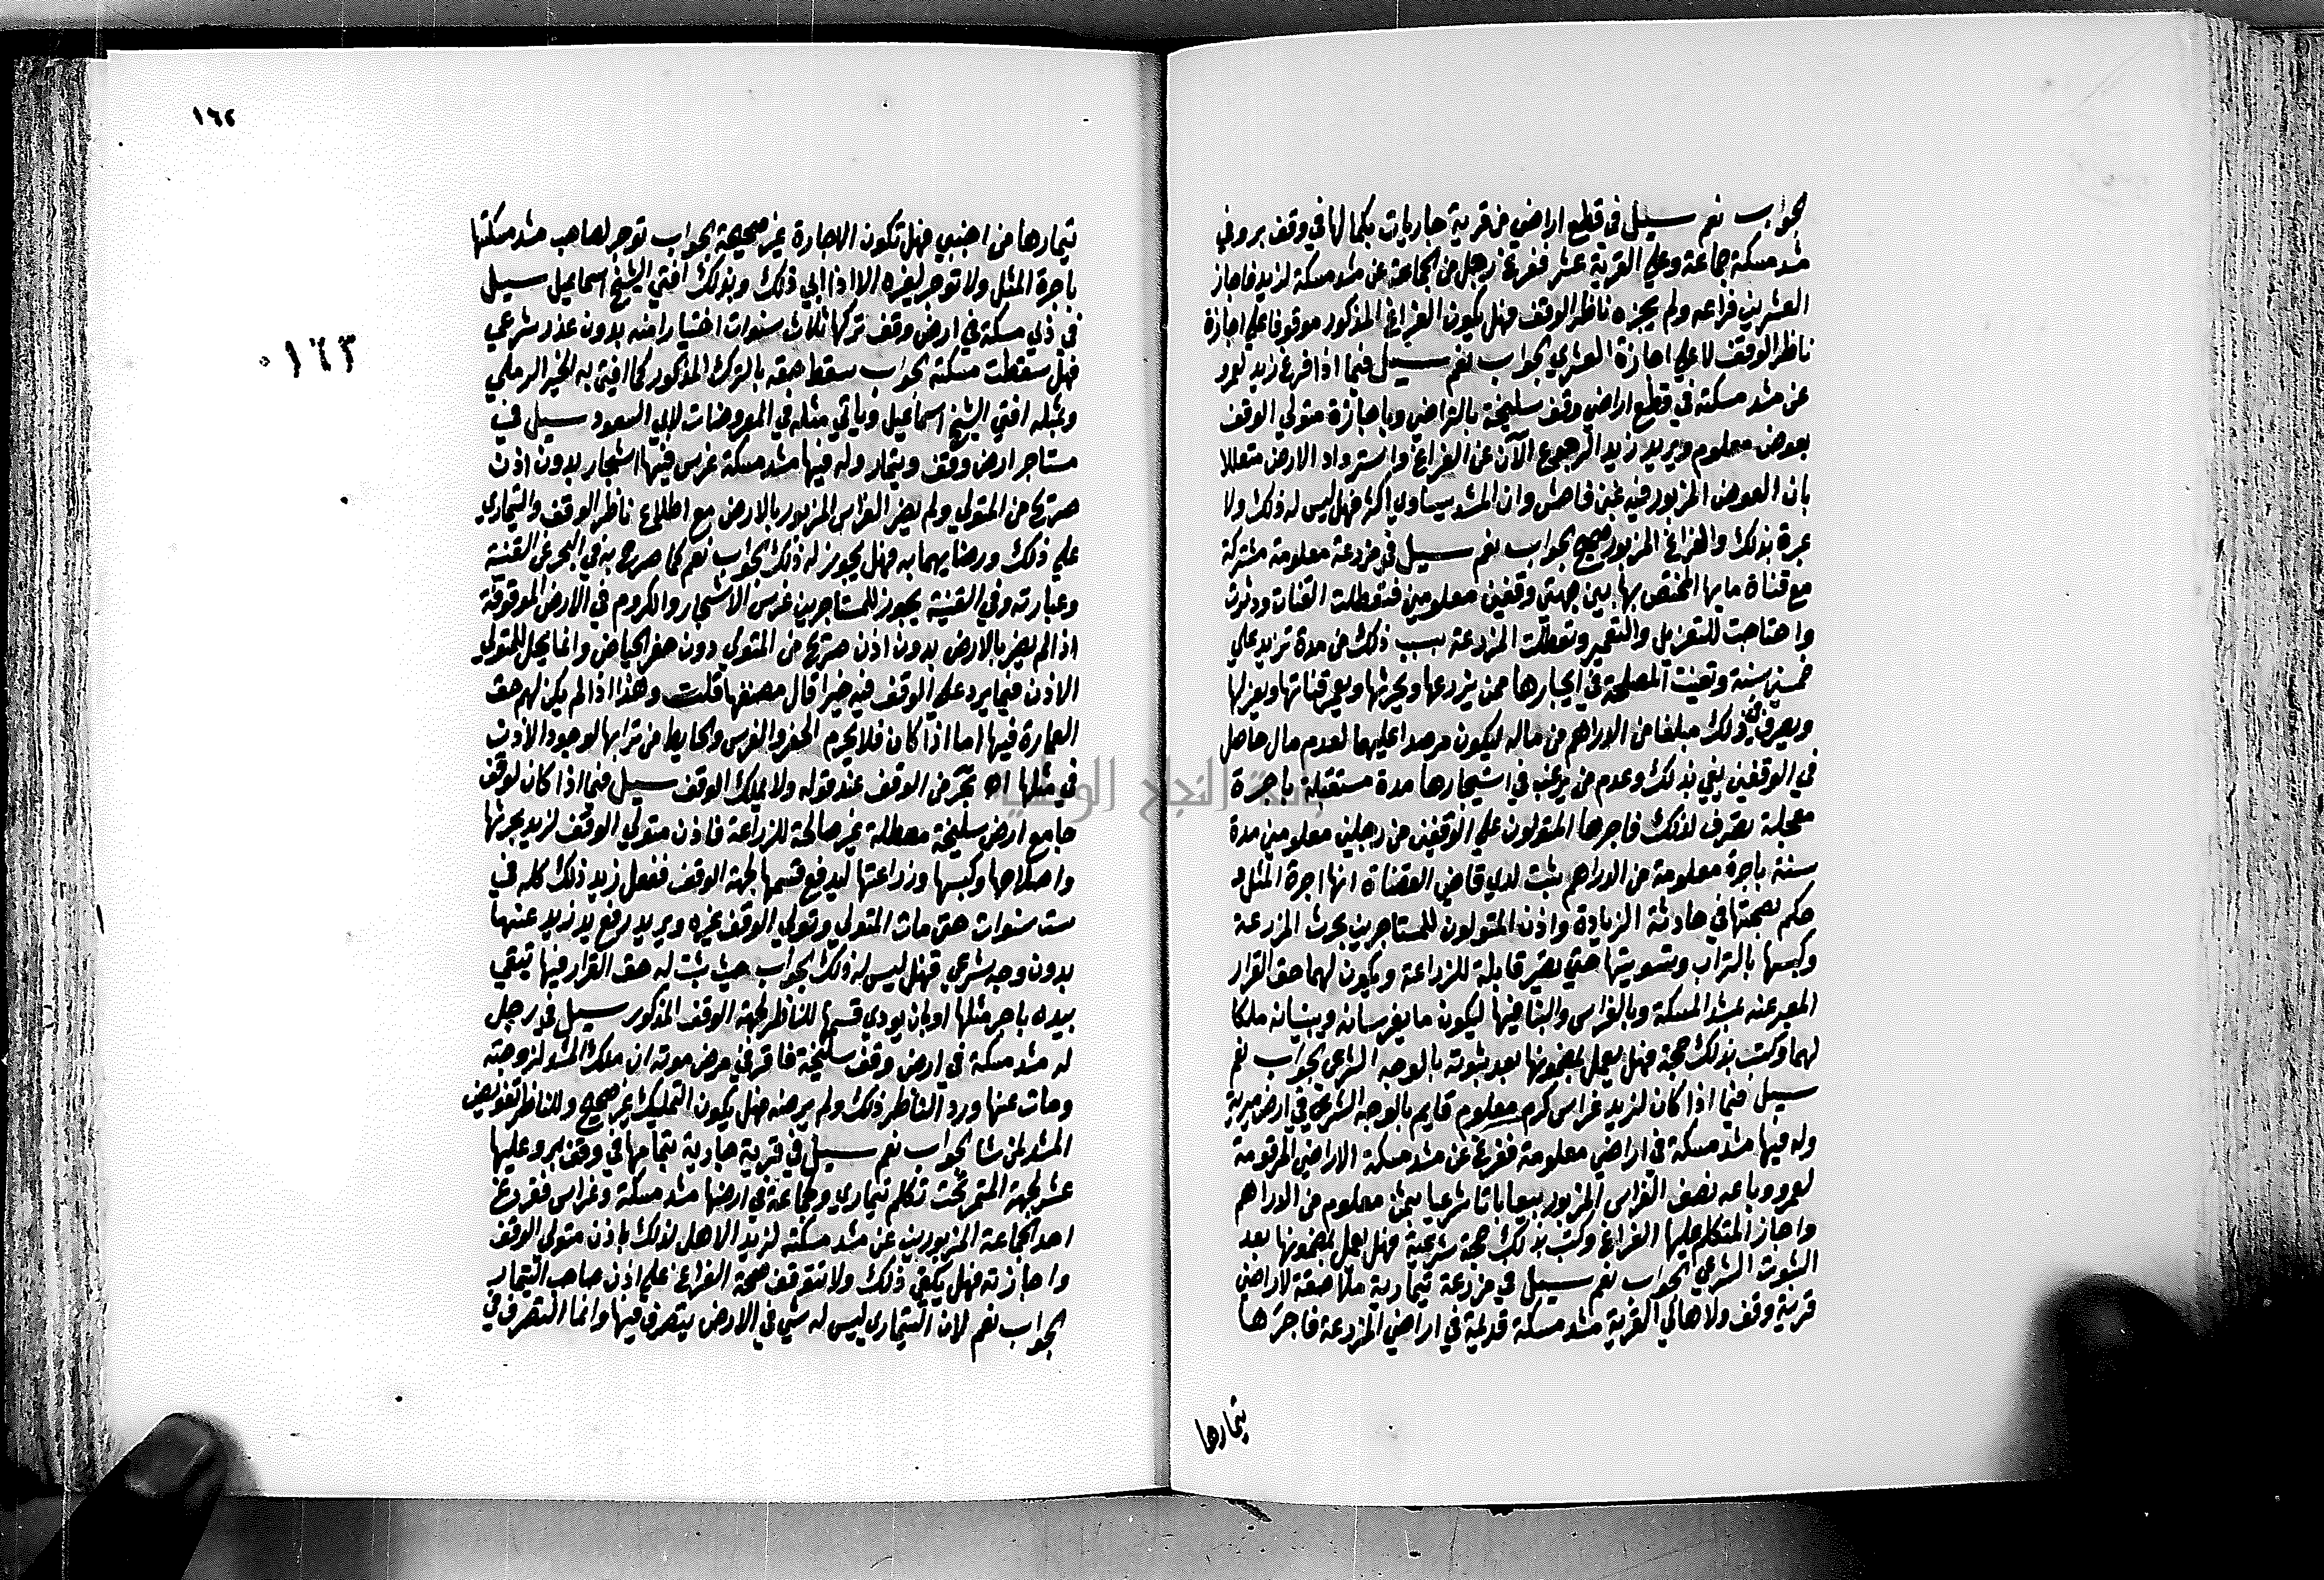 الجواب نعم سيل في قطيع اراضي من قرية جاريات بكمالها في وقف بر وفي
مشد مسكة جماعة وعلي القرية عشر ففرغ رجل من الجماعة عن مشد مسكة لزيد فاجاز
العشريين فراغه ولم يجزه ناظر الوقف فهل يكون الفراغ المذكور موقوفا علي اجازة
ناظر الوقف لا علي اجازة العشري الجواب نعم سيل فيما اذا فرغ زيد لعمرو
عن مشد مسكته في قطع اراضي وقف سليخة بالتراضي وباجازة متولي الوقف
بعوض معلوم ويريد زيد الرجوع الآن عن الفراغ واسترداد الارض متعللا
بان العوض المزبور فيه غبن فاحش وان المشد يساوي اكثر فهل ليس له ذلك ولا
عبرة بذلك والفراغ المزبور صحيح الجواب نعم سيل في مزرعة معلومة مشتركة
مع قناة مايها المختص بها بين جهتي وقفين معلومين فتعطلت القنات ودثرت
واحتاجت للتعزيل والتعمير وتعطلت المزرعة بسبب ذلك من مدة تزيد علي
خمسين سنة وتعينت المصلحة في ايجارها ممن يزرعها ويحرثها ويعمر قناتها ويعزلها
ويصرف في ذلك مبلغا من الدراهم من ماله ليكون مرصدا عليهما لعدم مال حاصل
في الوقفين يفي بذلك وعدم من يرغب في استيجارها مدة مستقبلة باجرة
معجلة تصرف لذلك فاجرها المتولون علي الوقفين من رجلين معلومين مدة
سنة باجرة معلومة من الدراهم ثبت لدي قاضي القضاة انها اجرة المثل و
حكم بصحتها في حادثة الزيادة واذن المتولون للمستاجرين بحرث المزرعة
وكبسها بالتراب وتسويتها حتي تصير قابلة للزراعة ويكون لهما حق القرار
المعبر عنه بمشد المسكة وبالغراس والبنا فيها ليكون ما يغرسانه ويبنيانه ملكا
لهما وكتب بذلك حجة فهل يعمل بمضمونها بعد ثبوته بالوجه الشرعي الجواب نعم
سيل فيما اذا كان لزيد غراس كرم معلوم قايم بالوجه الشرعي في ارض ميرية
وله فيها مشد مسكة في اراضي معلومة ففرغ عن مشد مسكة الاراضي المرقومة
لعمرو وباعه نصف الغراس المزبور بيعا باتا شرعيا بثمن معلوم من الدراهم
واجاز المتكلم عليها الفراغ وكتب بذلك حجة شرعية فهل يعمل بمضمونها بعد
الثبوت الشرعي الجواب نعم سيل في مزرعة تيمارية ملاصقة لاراضي
قرية وقف ولاهالي القرية مشد مسكة قديمة في اراضي المزرعة فاجرها
تيمارها
١٦٢
٠١٦٣
تيمارها من اجنبي فهل تكون الاجارة غير صحيحة الجواب توجر لصاحب مشد مسكتها
باجرة المثل ولا توجر لغيره الا اذا ابي ذلك وبذلك افتي الشيخ اسماعيل سيل
في ذي مسكة في ارض وقف تركها ثلاث سنوات اختيارا منه بدون عذر شرعي
فهل سقطت مسكته الجواب سقط حقه بالترك المذكور كما افتي به الخير الرملي
وبمثله افتي الشيخ اسماعيل وياتي مثله في المعروضات لابي السعود سيل في
مستاجر ارض وقف وتيمار وله فيها مشد مسكة غرس فيها اشجار بدون اذن
صريح من المتولي ولم يضر الغراس المزبور بالارض مع اطلاع ناظر الوقف والتيماري
علي ذلك ورضايهما به فهل يجوز له ذلك الجواب نعم كما صرح به في البحر عن القنية
وعبارته وفي القنية يجوز للمستاجرين غرس الاشجار والكروم في الارض الموقوفة
اذا لم يضر بالارض بدون اذن صريح من المتولي دون حفر الحياض وانما يحل للمتولي
الاذن فيما يزد علي الوقف فيه خيرا قال مصنفها قلت وهذا اذا لم يكن لهم حق
العمارة فيها اما اذا كان فلا يحرم الحفر والغرس والحايط من ترابها لوجود الاذن
في مثلها اه بحر من الوقف عند قوله ولا يملك الوقف سيل فيما اذا كان لوقف
جامع ارض سليخة معطلة غير صالحة للزراعة فاذن متولي الوقف لزيد بحرثها
واصلاحها وكبسها وزراعتها ليدفع قسمها لجهة الوقف ففعل زيد ذلك كله في
ست سنوات حتي مات المتولي وتولي الوقف غيره ويريد رفع يد زيد عنها
بدون وجه شرعي فهل ليس له ذلك الجواب حيث ثبت له حق القرار فيها تبقي
بيده باجر مثلها او بان يودي قسمها للناظر لجهة الوقف المذكور سيل في رجل
له مشد مسكة في ارض وقف سليخة فاقر في مرض موته ان ملك المشد لزوجته
ومات عنها ورد الناظر ذلك ولم يرضه فهل يكون التمليك غير صحيح وللناظر تفويض
المشد لمن شا الجواب نعم سيل في قرية جارية بتمامها في وقف بر وعليها
عشر لجهة الميري تحت تكلم تيماري وجماعة في ارضها مشد مسكة وغراس ففرغ
احد الجماعة المزبورين عن مشد مسكته لزيد الاهل لذلك باذن متولي الوقف
واجازته فهل يكفي ذلك ولا تتوقف صحة الفراغ علي اذن صاحب التيمار
الجواب نعم لان التيماري ليس له شي في الارض يتصرف فيها وانما التصرف في